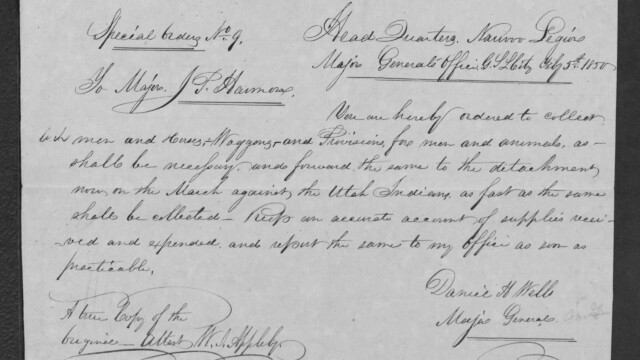 Special Orders No. 9.
Head Quarters. Nauvoo Legion
Major Generals Office G.S.L City Feby 5th 1850
To Major. J. P. Harmon.
You are hereby ordered to collect
men and Horses, Waggons, and Provisions, for men and animals, as
shall be necessary. and forward the same to the detachment
now on the March against the Utah Indians. as fast as the same
shall be collected – Keep an accurate account of supplies recei-
ved and expended. and report the same to my office as soon as
practicable,
Daniel H Wells
Major General
A true Copy of the
Original – Attest W. I. Appleby.